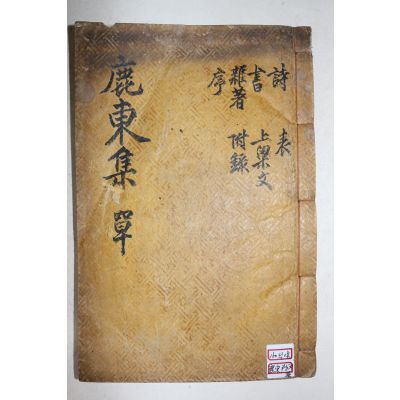 詩 表
書 上梁文
雜著 附錄
序
鹿東集 單